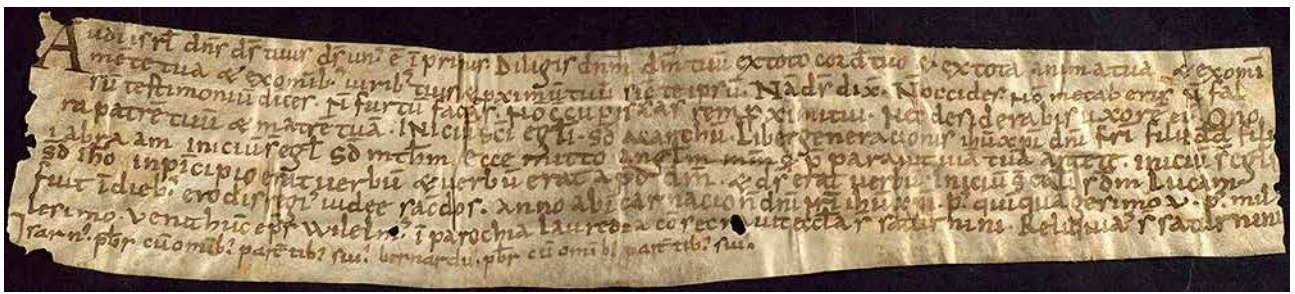 Audi isrł dn̄s ds̄ tuus ds̄ un᷒ ē ī primis Diligis dn̄m dm̄ tuū ex toto cord tuo & ex tota anima tua & ex omī
mēte tua & ex omīb᷒ uirib᷒ tuis & pximū tuū sic te ipsū. Nā ds̄ dix̄. N̄ occides Nō mecaberis N̄ fal
sū testimoniū dices. N̄ furtū facias. N̄ occupisças rem pximi tui. Nō desiderabis uxorē ei᷒ Ono
ra patrē tuū & matrē tuā. INiciū sc̄i egłi. sd̄ Liber generacionis ihū xpī dn̄i filii dd̄ filii
abraam iniciū egł sd̄ ecce mitto anglm q p parauit uia tua ante te. iniciū sc̄i
sd̄ ihō in pncipio erāt uerbū & uerbū erat apd dm̄. & ds̄ erat uerbū. iniciū sc̄i sdm̄ Lucam
fuit ī dieb᷒ erodis regi᷒ iudee sac̄dos. Anno ab īcarnacion dn̄i ihū xpī p᷒ quiquagesimo v. p᷒ mil
lesimo. venit hūc ep̄s Wilelm᷒ ī parochia consecrauit sci saturnini. Reliquias s saturnini
Isarn᷒. pbr cū omīb᷒ parētib᷒ sui᷒. bernardu᷒. pbr cū omī b᷒ parētib᷒ sui᷒.